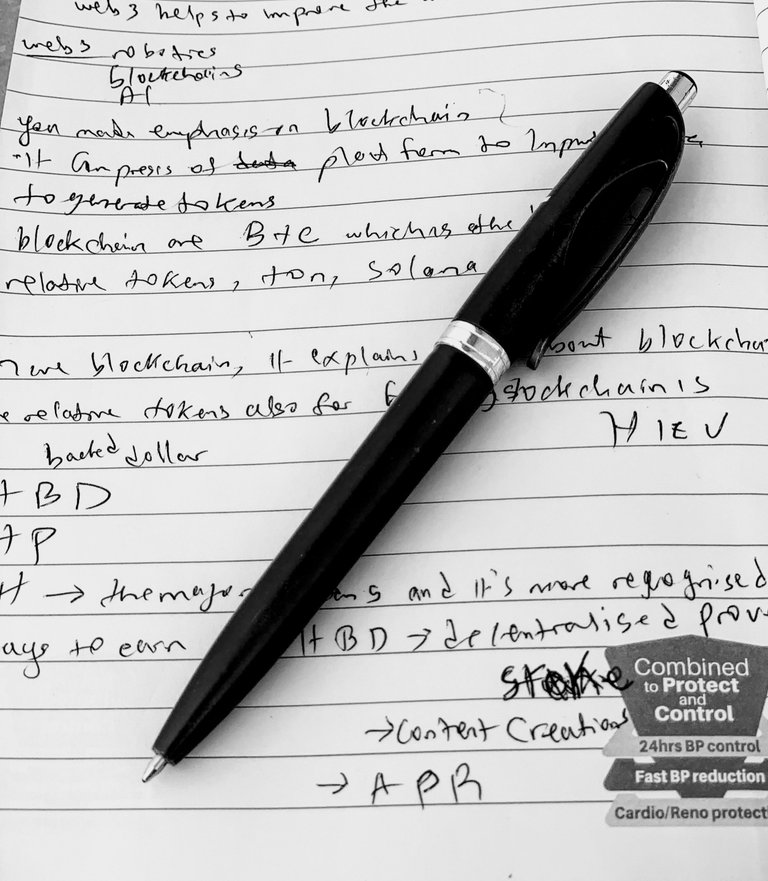 web3 helps to improve the
web3 robotics
blockchains
AI
You made emphasis on blockchain
"It Compresis of platform to
to generate tokens
blockchain are BTC which is the
relative tokens, ton, Solana
blockchain, it explains about blockchain
relative tokens also for blockchain is
HIEV
backed dollar
HBD
HP
H → the major and it's more regognised
ways to earn HBD → decentralised
stake
→ Content Creations
→ APR
Combined
to Protect
and
Control
24hrs BP control
Fast BP reduction
Cardio/Reno protect